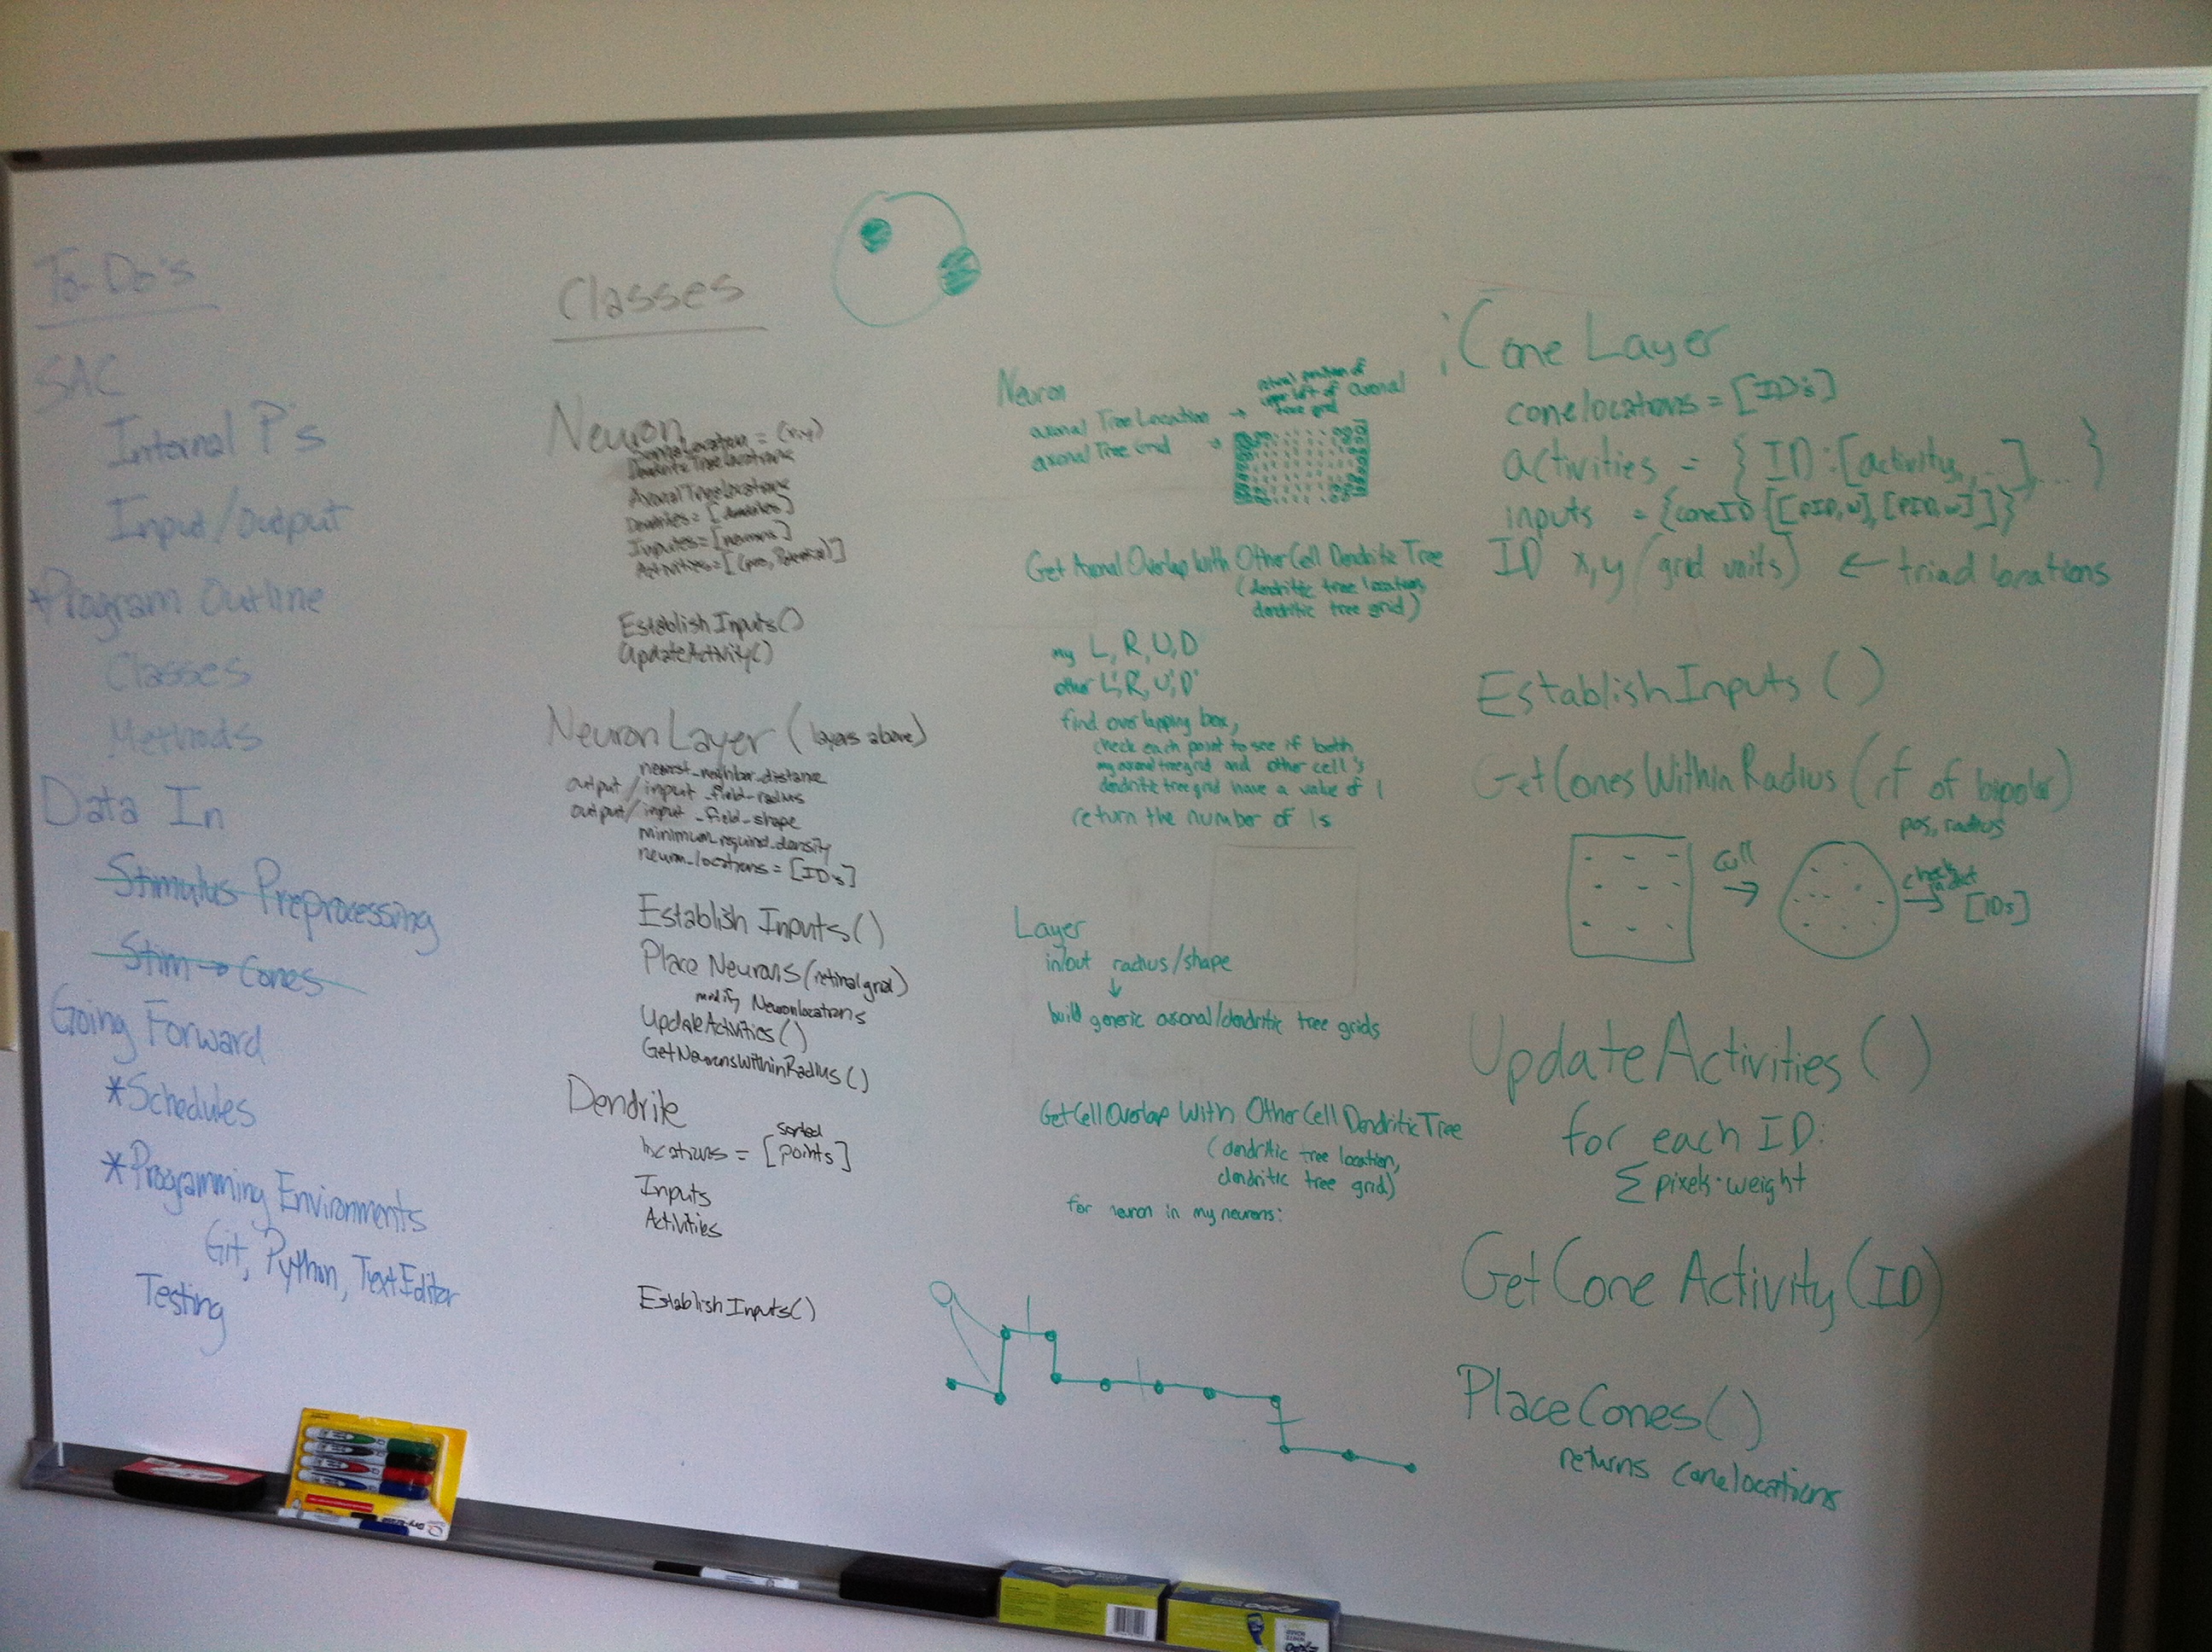 To-Do's
SAC
Internal P's
Input/Output
*Program Outline
Classes
Methods
Data In
Stimulus Preprocessing
Stim → Cones
Going Forward
*Schedules
*Programming Environments
Git, Python, TextEditor
Testing
Classes
Neuron
SomaLocation = (x,y)
DendriteTreeLocations
AxonalTreeLocations
Dendrites = [dendrites]
Inputes = [neurons]
Activities = [(pos, Potential)]
EstablishInputs()
UpdateActivity()
NeuronLayer (layers above)
nearest_neighbor_distance
output/input_field_radius
output/input_field_shape
minimum_required_density
neuron_locations = [ID's]
Establish Inputs()
Place Neurons (retinal grid)
modify Neuronlocations
UpdateActivities()
GetNeuronsWithinRadius()
Dendrite
locations = [sorted points]
Inputs
Activities
EstablishInputs()
Neuron
axonal Tree Location → actual position of upper left of axonal tree grid
axonal Tree Grid →
Get Axonal Overlap With Other Cell Dendritic Tree
(dendritic tree location,
dendritic tree grid)
my L, R, U, D
other L', R', U', D'
find overlapping box,
check each point to see if both
my axonal tree grid and other cell's
dendritic tree grid have a value of 1
return the number of 1s
Layer
in/out radius/shape
↓
build generic axonal/dendritic tree grids
GetCellOverlap With OtherCell DendriticTree
(dendritic tree location,
dendritic tree grid)
for neuron in my neurons:
Cone Layer
conelocations = [ID's]
activities = {ID:[activity,...]...}
inputs = {coneID {[[PID,w],[PID,w]]}
ID x,y (grid units) ← triad locations
EstablishInputs()
GetConesWithinRadius (rf of bipolar)
pos, radius
cull →
check →
[IDs]
UpdateActivities()
for each ID:
Σ pixels·weight
GetCone Activity (ID)
PlaceCones()
returns conelocations
EXPO